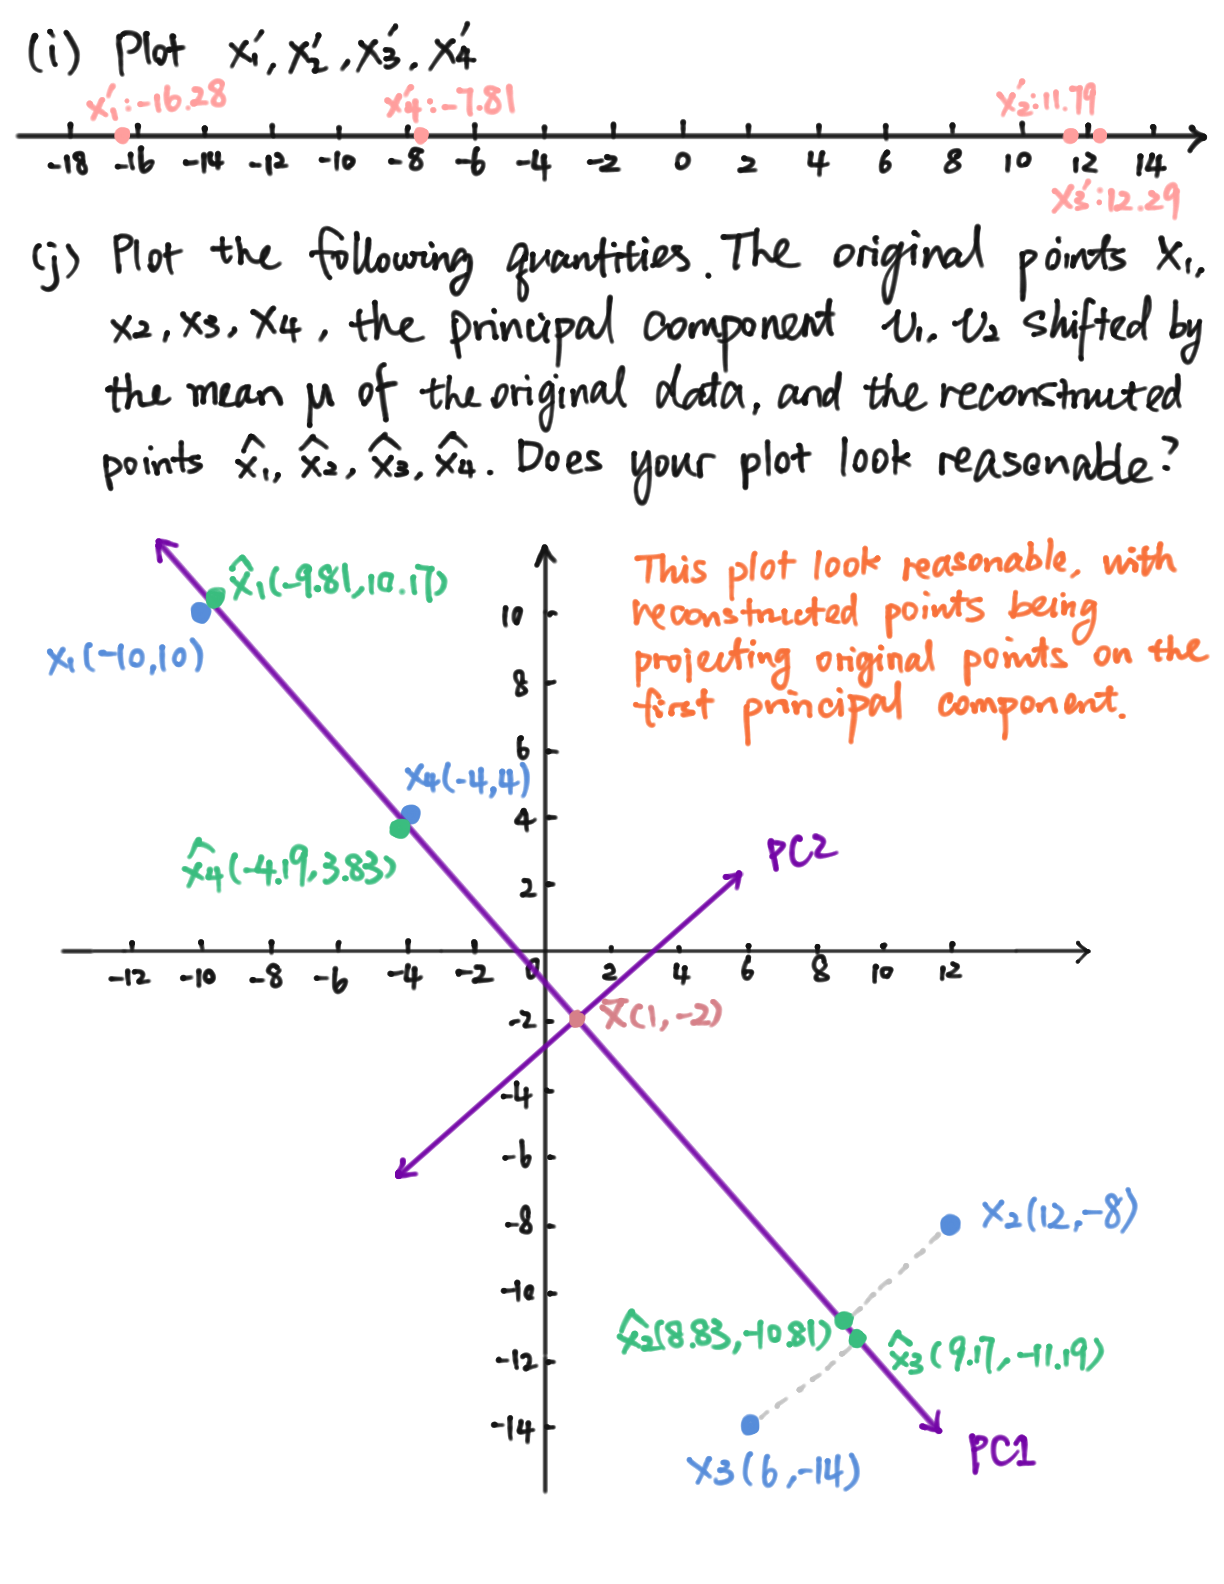 (i) Plot x₁', x₂', x₃', x₄'
x₁':-16.28 x₄':-7.81 x₂':11.79
-18 -16 -14 -12 -10 -8 -6 -4 -2 0 2 4 6 8 10 12 14
x₃':12.29
(j) Plot the following quantities. The original points x₁,
x₂, x₃, x₄, the principal component v₁, v₂ shifted by
the mean μ of the original data, and the reconstructed
points x̂₁, x̂₂, x̂₃, x̂₄. Does your plot look reasonable?
This plot look reasonable, with
reconstructed points being
projecting original points on the
first principal component.
x̂₁(-9.81,10.17)
x₁(-10,10)
x₄(-4,4)
x̂₄(-4.19,3.83)
PC2
10
8
6
4
2
-12 -10 -8 -6 -4 -2 0 2 4 6 8 10 12
x̄(1,-2)
-2
-4
-6
-8
-10
-12
-14
x₂(12,-8)
x̂₂(8.83,-10.81)
x̂₃(9.17,-11.19)
x₃(6,-14)
PC1